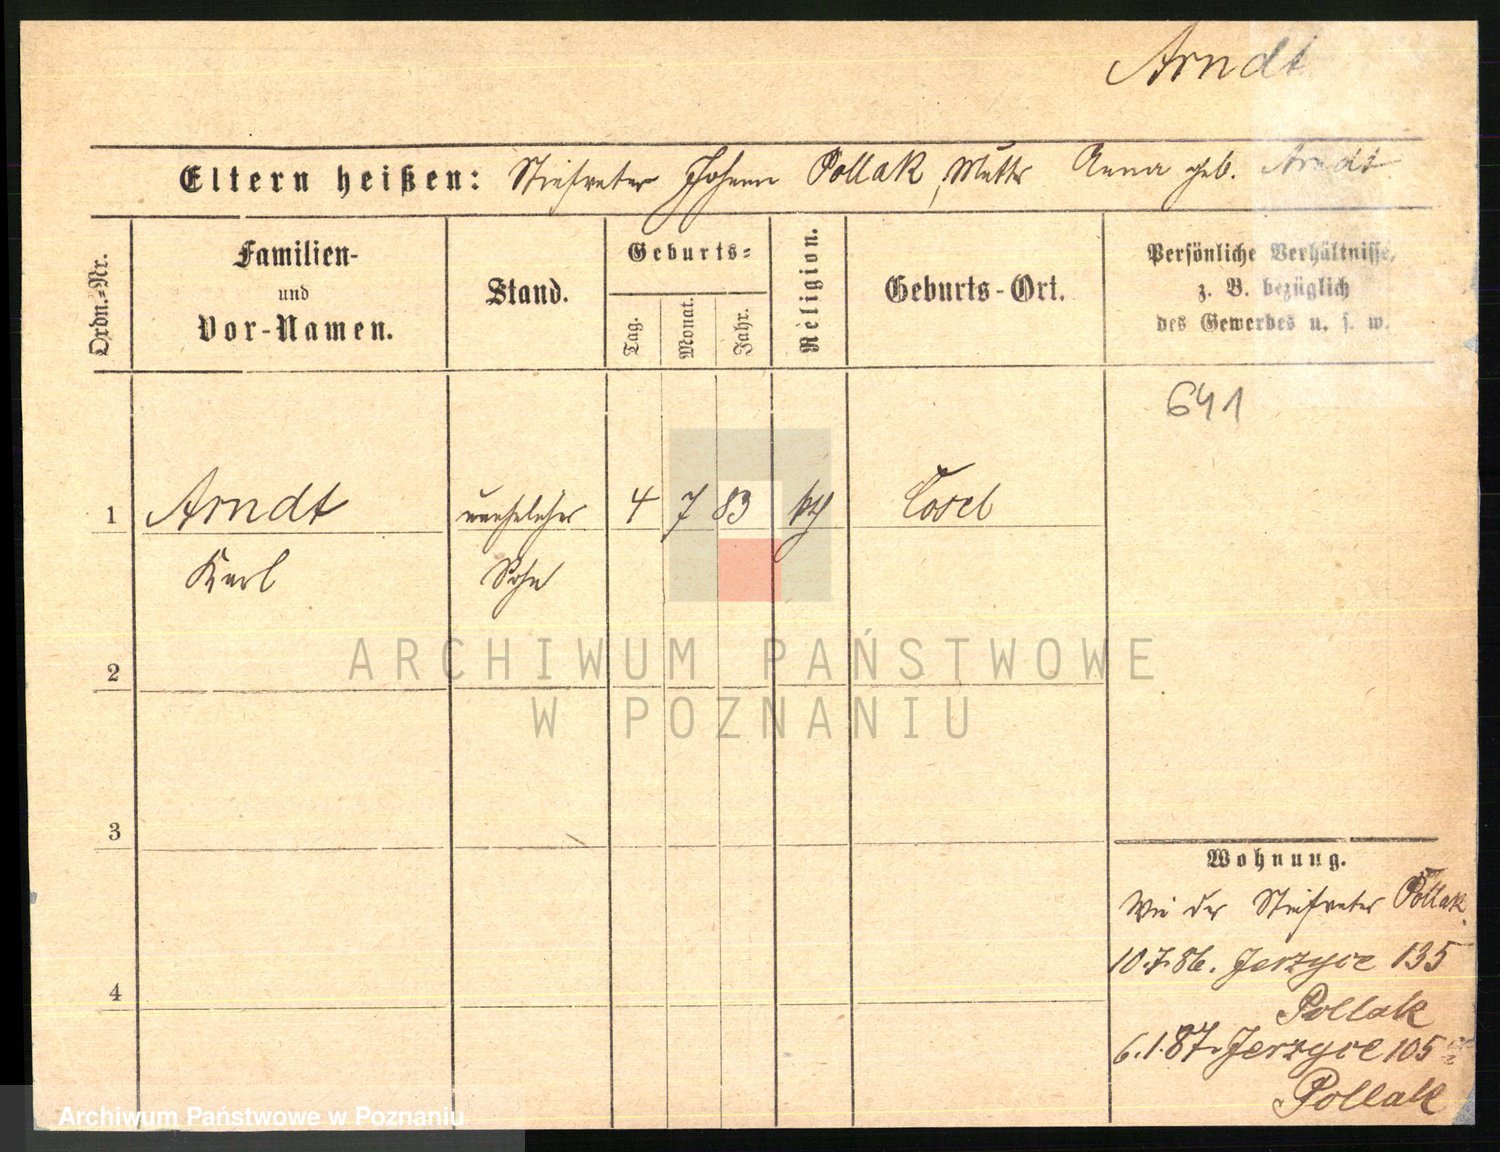 Arndt
Eltern heißen: Stiefvater Johann Pollak, Mutter Anna geb. Arndt
Ordn.-Nr.
Familien-
und
Vor-Namen.
Stand.
Geburts-
Tag.
Monat.
Jahr.
Religion.
Geburts-Ort.
Persönliche Verhältnisse,
z. B. bezüglich
des Gewerbes u. s. w.
641
1 Arndt unehelicher 4 7 83 Cosel
Karl Sohn
2
3
4
Wohnung.
Wie der Stiefvater Pollak.
10.7.86. Jerzyce 135
Pollak
6.1.87. Jerzyce 105
Pollak
ARCHIWUM PAŃSTWOWE
W POZNANIU
Archiwum Państwowe w Poznaniu